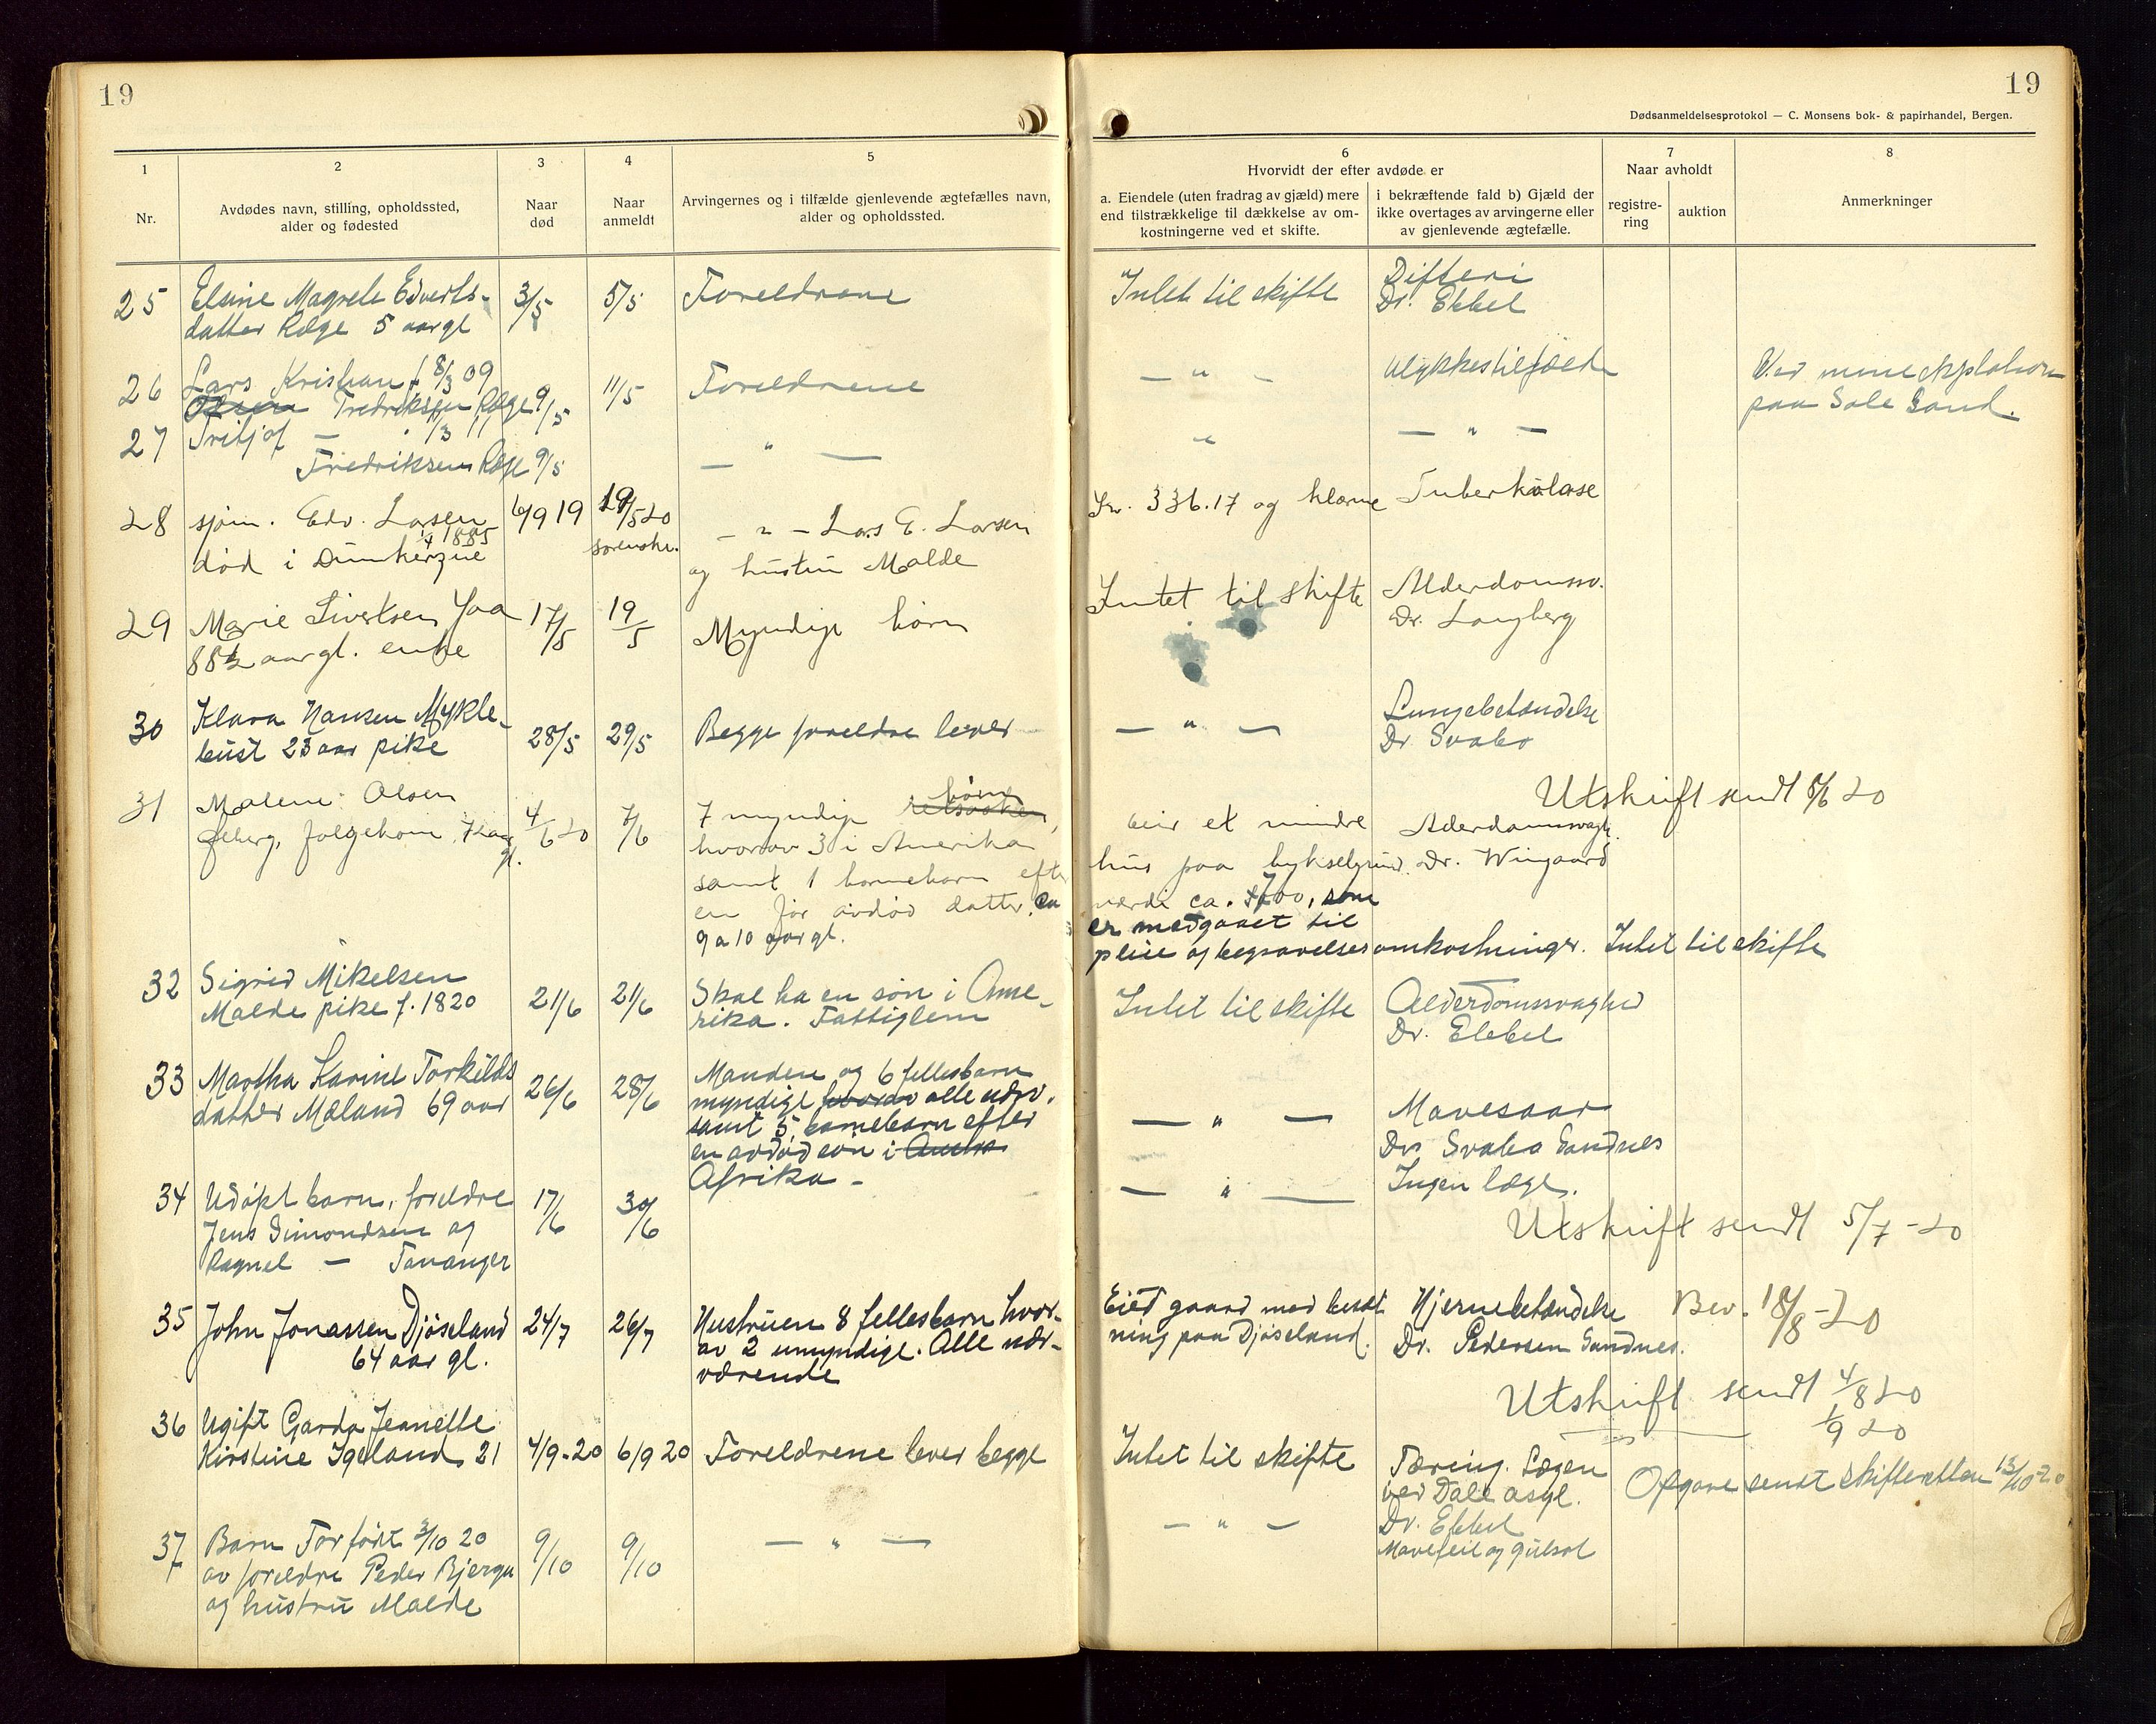 19
19
Dødsanmeldelsesprotokol — C. Monsens bok- & papirhandel, Bergen.
1
Nr.
2
Avdødes navn, stilling, opholdssted,
alder og fødested
3
Naar
død
4
Naar
anmeldt
5
Arvingernes og i tilfælde gjenlevende ægtefælles navn,
alder og opholdssted.
6
Hvorvidt der efter avdøde er
a. Eiendele (uten fradrag av gjæld) mere
end tilstrækkelige til dækkelse av om-
kostningerne ved et skifte.
i bekræftende fald b) Gjæld der
ikke overtages av arvingerne eller
av gjenlevende ægtefælle.
7
Naar avholdt
registre-
ring
auktion
8
Anmerkninger
25 Elsine Magrete Edverts-
datter Ræge 5 aar gl
3/5 5/5 Foreldrene
Intet til skifte
Difteri
Dr. Ebbel
26 Lars Kristian f. 8/3 09
Fredriksen Ræge 9/5
11/5 Foreldrene
— " — Ulykkestilfæld
Ved mine explotion
paa Sole Sand.
27 Fritjof — 1/3 11
Fredriksen Ræge 9/5
— " —
" — " —
28 sjøm. Edv. Larsen
1/4 1885
død i Dunkerque
6/9 19 19/5 20
sorenskr.
— " — Lars E. Larsen
og hustru Malde
Kr. 336.17 og klærne Tuberkulose
29 Marie Sivertsen Joa
88½ aar gl. enke
17/5 19/5 Myndige børn
Intet til skifte
Alderdomssv.
Dr. Langberg
30 Klara Hansen Mykle-
bust 23 aar pike
28/5 29/5 Begge foreldre lever
— " —
Lungebetændelse
Dr Svabo
Utskrift sendt 8/6 20
31 Malene Olsen
Øeberg, følgekone, 7 aar
gl.
4/6 20 7/6
7 myndige børn
hvorav 3 i Amerika
samt 1 barnebarn efter
en før avdød datter. ca
9 a 10 aar gl.
Eier et mindre
hus paa bykselgrund.
værdi ca. 700, som
er medgaaet til
pleie og begravelsesomkostninger. Intet til skifte
Alderdomssvagh.
Dr. Wingaard
32 Sigrid Mikelsen
Malde pike f. 1820
21/6 21/6
Skal ha en søn i Ame-
rika. Fattiglem
Intet til skifte
Alderdomssvaghed
Dr. Ebbel
33 Martha Karine Torkilds
datter Mæland 69 aar
26/6 28/6
Manden og 6 fellesbarn
myndige hvorav alle udv.
samt 5 barnebarn efter
en avdød søn i
Afrika —
— " —
Mavesaar
Dr Svabo Sandnes
34 Udøpt barn, foreldre
Jens Simondsen og
Ragnel — Tananger
17/6 30/6
— " — Ingen læge.
Utskrift sendt 5/7 -20
35 John Jonassen Djøseland
64 aar gl.
24/7 26/7
Hustruen 8 fellesbarn hvor-
av 2 umyndige. Alle udr-
værende
Eied gaard med besæt
ning paa Djøseland.
Hjernebetændelse
Dr. Pedersen Sandnes.
Bev. 18/8 -20
Utskrift sendt 4/8 20
— " — 1/9 20
36 Ugift Garda Jeanette
Kirstine Igeland 21
4/9-20 6/9 20 Foreldrene lever begge
Intet til skifte
Tæring. Lægen
ved Dale asyl.
Opgave sendt skifteretten 13/10-20
37 Barn Tor født 3/10 20
av foreldre Peder Bjerga
og hustru Malde
9/10 9/10 — " —
— " —
Dr. Ebbel
Mavefeil og gulsot